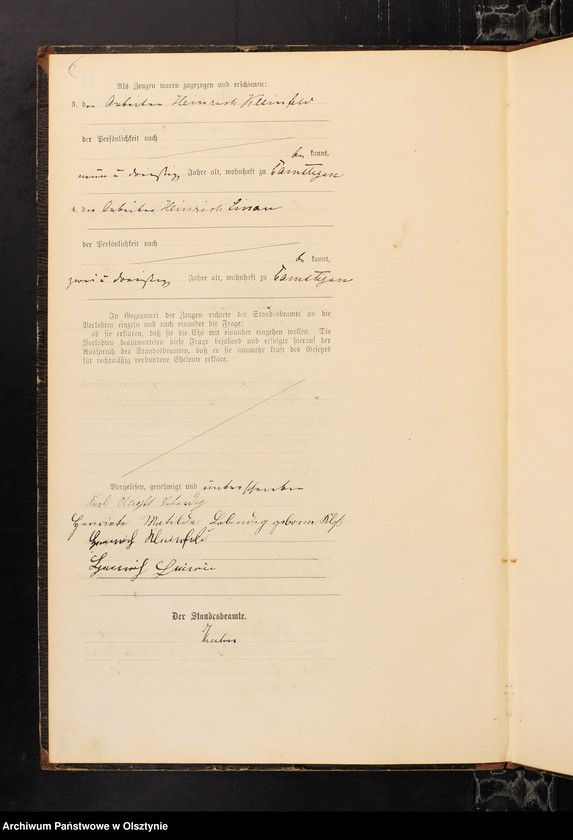 Als Zeugen waren zugezogen und erschienen:
3. der Arbeiter Heinrich Kleinfeld
der Persönlichkeit nach
be kannt,
neun u dreißig Jahre alt, wohnhaft zu
4. der Arbeiter Heinrich
der Persönlichkeit nach
be kannt,
zwei u dreißig Jahre alt, wohnhaft zu
In Gegenwart der Zeugen richtete der Standesbeamte an die
Verlobten einzeln und nach einander die Frage:
ob sie erklären, daß sie die Ehe mit einander eingehen wollen. Die
Verlobten beantworteten diese Frage bejahend und erfolgte hierauf der
Ausspruch des Standesbeamten, daß er sie nunmehr kraft des Gesetzes
für rechtmäßig verbundene Eheleute erkläre.
Vorgelesen, genehmigt und unterschrieben
Karl
Henriete Matilde geborne
Heinrich Kleinfeld
Heinrich
Der Standesbeamte.
Archiwum Państwowe w Olsztynie